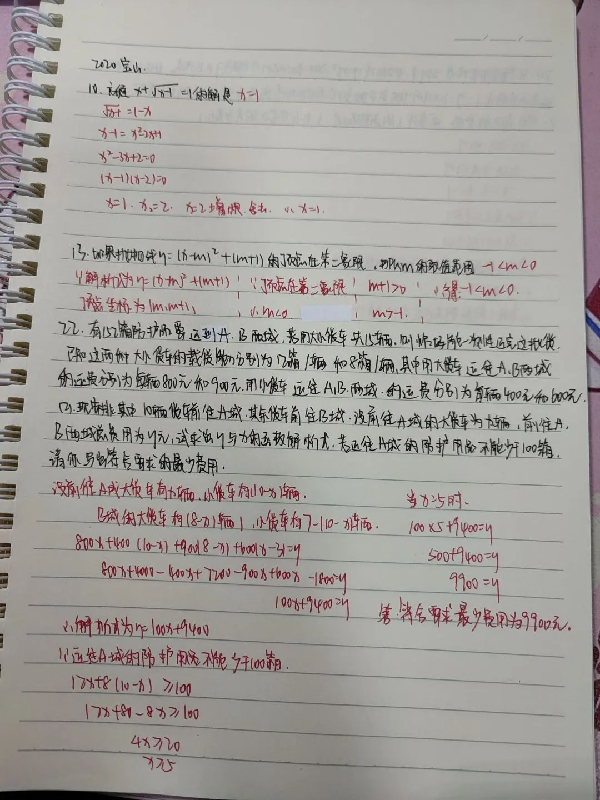 2020宝山.
10. 方程 x+√x-1 =1的解是 x=1
√x-1 =1-x
x-1= x²-2x+1
x²-3x+2=0
(x-1)(x-2)=0
x=1. x₂=2. x=2增根,舍去. ∴x=1.
13. 如果抛物线y=(x-m)²+(m+1)的顶点在第二象限,那么m的取值范围 -1<m<0
∵解析式为y=(x-m)²+(m+1) ∵顶点在第二象限 m+1>0 ∴得-1<m<0.
顶点坐标为(m,m+1) ∴m<0 m>-1.
22. 有152箱防护物资运到A.B两城,若用大小货车共15辆,则恰好能一次性运完这批货.
已知这两种大小货车的载货能力分别为12箱/辆和8箱/辆,其中用大货车运往A、B两城
的运费分别为每辆800元和900元.用小货车运往A、B两城.的运费分别为每辆400元和600元.
(2). 现安排其中10辆货车前往A城.其余货车前往B城.设前往A城的大货车为x辆,前往A.
B两城总费用为y元,试求出y与x的函数解析式.若运往A城的防护用品不能少于100箱.
请你写出符合要求的最少费用.
设前往A城大货车有x辆.小货车有(10-x)辆.
B城的大货车有(8-x)辆,小货车有7-(10-x)辆.
800x+400(10-x)+900(8-x)+600(x-3)=y
800x+4000-400x+7200-900x+600x-1800=y
100x+9400=y
∴解析式为y=100x+9400
∵运往A城的防护用品不能少于100箱.
12x+8(10-x)≥100
12x+80-8x≥100
4x≥20
x≥5
当x=5时.
100×5+9400=y
500+9400=y
9900=y
答:符合要求最少费用为9900元.